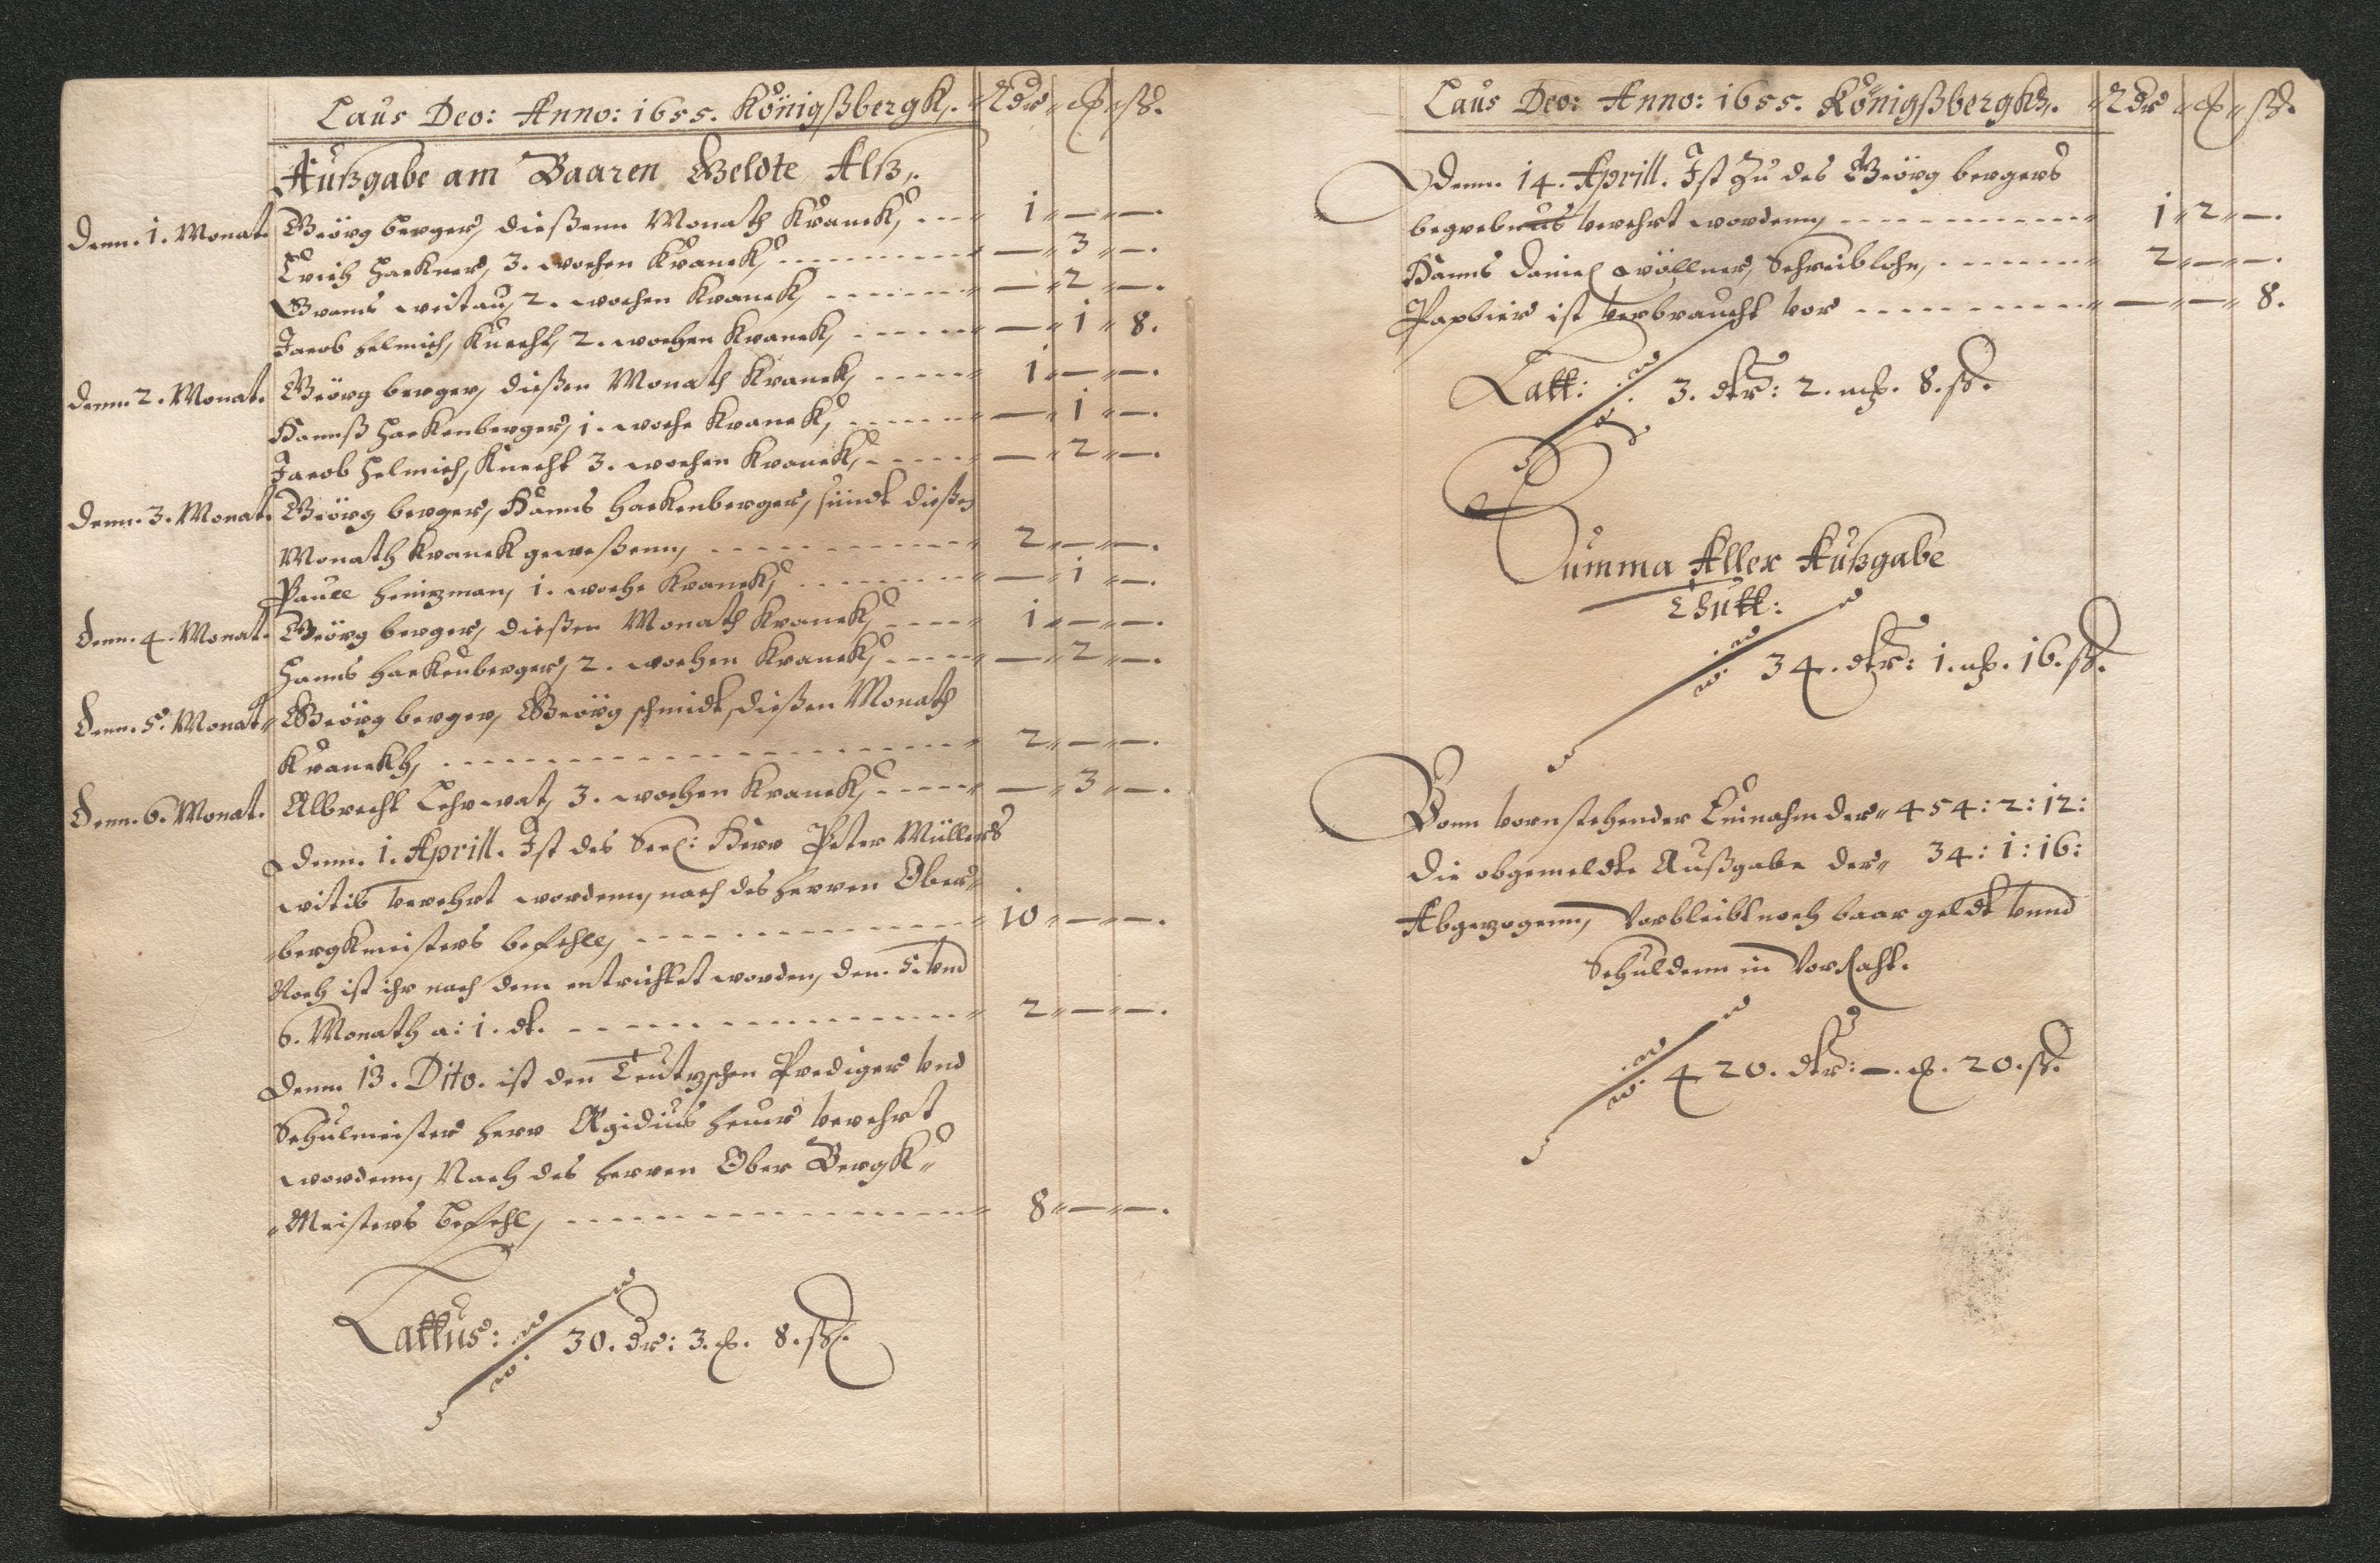 Laus Deo: Anno: 1655. Königßbergk. Rdr ß.
Außgabe am Baaren Geldte Alß.
Denn. 1. Monat. Geörg berger, dießenn Monath Kranck, 1 — —.
Erich Hackner, 3. wochen Kranck, — 3 —.
2. wochen Kranck, — 2 —.
Jacob Helmich, Knecht, 2. wochen Kranck, — 1 8.
Denn. 2. Monat. Geörg berger, dießen Monath Kranck, 1 — —.
Hannß Hackenberger, 1. woche Kranck, — 1 —.
Jacob Helmich, Knecht 3. wochen Kranck, — 2 —.
Denn. 3. Monat. Geörg berger, Hanns Hackenberger, sündt dießen
Monath Kranck geweßenn, 2 — —.
Paull Heinzman, 1. woche Kranck, — 1 —.
Denn. 4. Monat. Geörg berger, dießen Monath Kranck, 1 — —.
Hanns Hackenberger, 2. wochen Kranck, — 2 —.
Denn. 5. Monat Geörg berger, Geörg schmidt, dießen Monath
Kranckh, 2 — —.
Denn. 6. Monat. Albrecht Lehrwat, 3. wochen Kranck, — 3 —.
Denn. 1. Aprill. Ist des Seel: Herr Peter Müllers
witib verehrt wordenn, nach des herren Ober
bergkmeisters befehll, 10 — —.
Noch ist ihr nach dem entrichtet worden, den. 5. vnd
6. Monath a: 1. dt. 2 — —.
Denn. 13. Dito. ist den Teutzschen Prediger vnd
Schulmeister herr Ægidius verehrt
wordenn, Nach des herren Ober Bergk
Meisters Befehl, 8 — —.
Lattus: 30. dr: 3. 8. ß.
Laus Deo: Anno: 1655. Königßbergk. Rdr ß.
Denn. 14. Aprill. Ist Zu des Geörg bergers
begrebnus verehrt wordenn, 1 2 —.
Hanns Daniel Wöllner, Schreiblohn, 2 — —.
Pappier ist verbraucht vor — — 8.
Latt: 3. dtr: 2. 8. ß.
Summa Aller Außgabe
Thutt:
34. dtr: 1. 16. ß.
Vonn vornstehender Einahm der 454: 2: 12:
Die obgemeldte Außgabe der 34: 1: 16:
Abgezogenn, Verbleibt noch baar geldt vnnd
Schuldenn in Vorraht.
420. dtr: —. 20. ß.